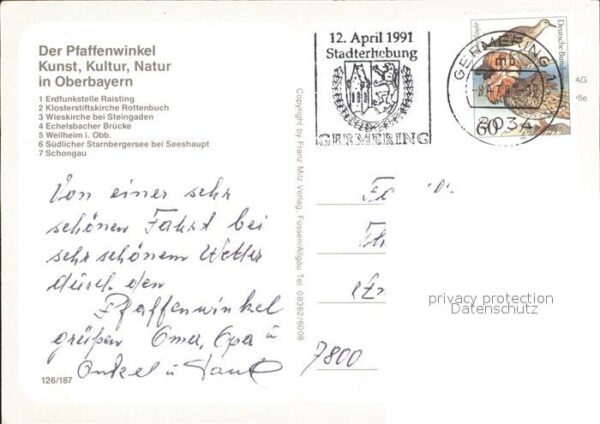 Der Pfaffenwinkel
Kunst, Kultur, Natur
in Oberbayern
1 Erdfunkstelle Raisting
2 Klosterstiftskirche Rottenbuch
3 Wieskirche bei Steingaden
4 Echelsbacher Brücke
5 Weilheim i. Obb.
6 Südlicher Starnbergersee bei Seeshaupt
7 Schongau
Von einer sehr
schönen Fahrt bei
sehr schönem Wetter
durch den
Pfaffenwinkel
grüßen Oma, Opa u
Onkel u Tante
126/187
Copyright by Franz Milz Verlag, Füssen/Allgäu Tel. 08362/6008
12. April 1991
Stadterhebung
GERMERING
GERMERING 1
mb
8034
Deutsche Bund
60
AG
7800
privacy protection
Datenschutz